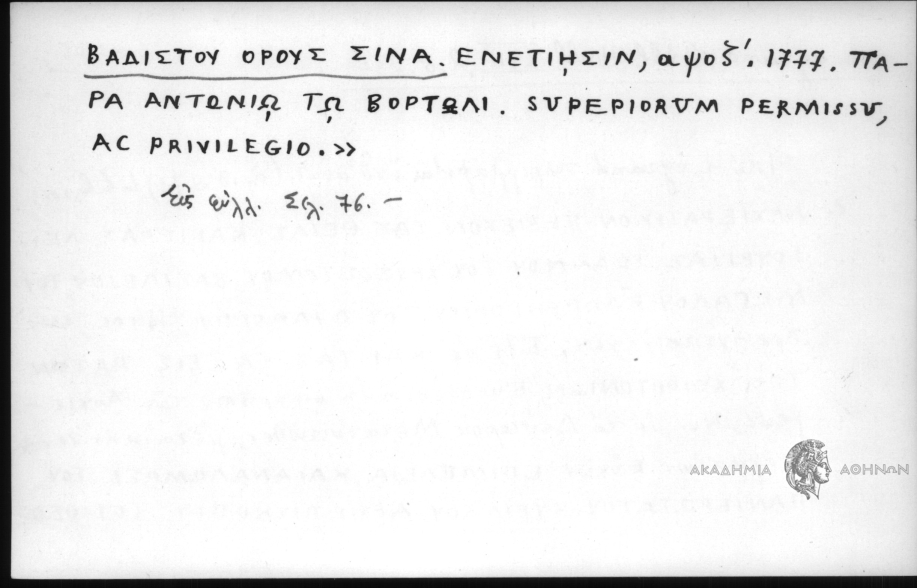 ΒΑΔΙΣΤΟΥ ΟΡΟΥΣ ΣΙΝΑ. ΕΝΕΤΙΗΣΙΝ, αψοζ΄. 1777. ΠΑ-
ΡΑ ΑΝΤΩΝΙῼ Τῼ ΒΟΡΤΩΛΙ. SUPERIORUM PERMISSU,
AC PRIVILEGIO.»
Εἰς φύλλ. Σελ. 76. –
ΑΚΑΔΗΜΙΑ ΑΘΗΝΩΝ